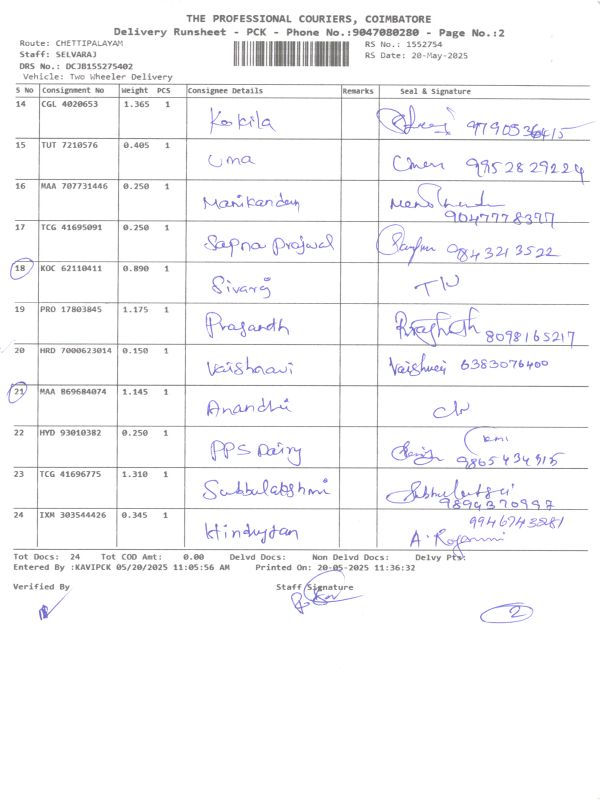 THE PROFESSIONAL COURIERS, COIMBATORE
Delivery Runsheet - PCK - Phone No.:9047080280 - Page No.:2
Route: CHETTIPALAYAM RS No.: 1552754
Staff: SELVARAJ RS Date: 20-May-2025
DRS No.: DCJB155275402
Vehicle: Two Wheeler Delivery
S No Consignment No Weight PCS Consignee Details Remarks Seal & Signature
14 CGL 4020653 1.365 1
Kokila 9790536415
15 TUT 7210576 0.405 1
Uma 9952829224
16 MAA 707731446 0.250 1
Manikandan
9047778377
17 TCG 41695091 0.250 1
Sapna Prajwal 9843213522
18 KOC 62110411 0.890 1
Sivaraj
19 PRO 17803845 1.175 1
Prasandh 8098165217
20 HRD 7000623014 0.150 1
Vaishnavi 6383076400
21 MAA 869684074 1.145 1
Anandhi
22 HYD 93010382 0.250 1
PPS Dairy 9865434915
23 TCG 41696775 1.310 1
Subbulakshmi
9894370997
24 IXM 303544426 0.345 1 9946743281
Hindustan
Tot Docs: 24 Tot COD Amt: 0.00 Delvd Docs: Non Delvd Docs: Delvy Pts:
Entered By :KAVIPCK 05/20/2025 11:05:56 AM Printed On: 20-05-2025 11:36:32
Verified By Staff Signature
2